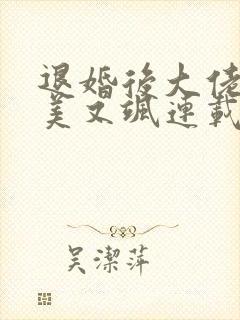 退婚後大佬
美又颯連載
吴潔萍